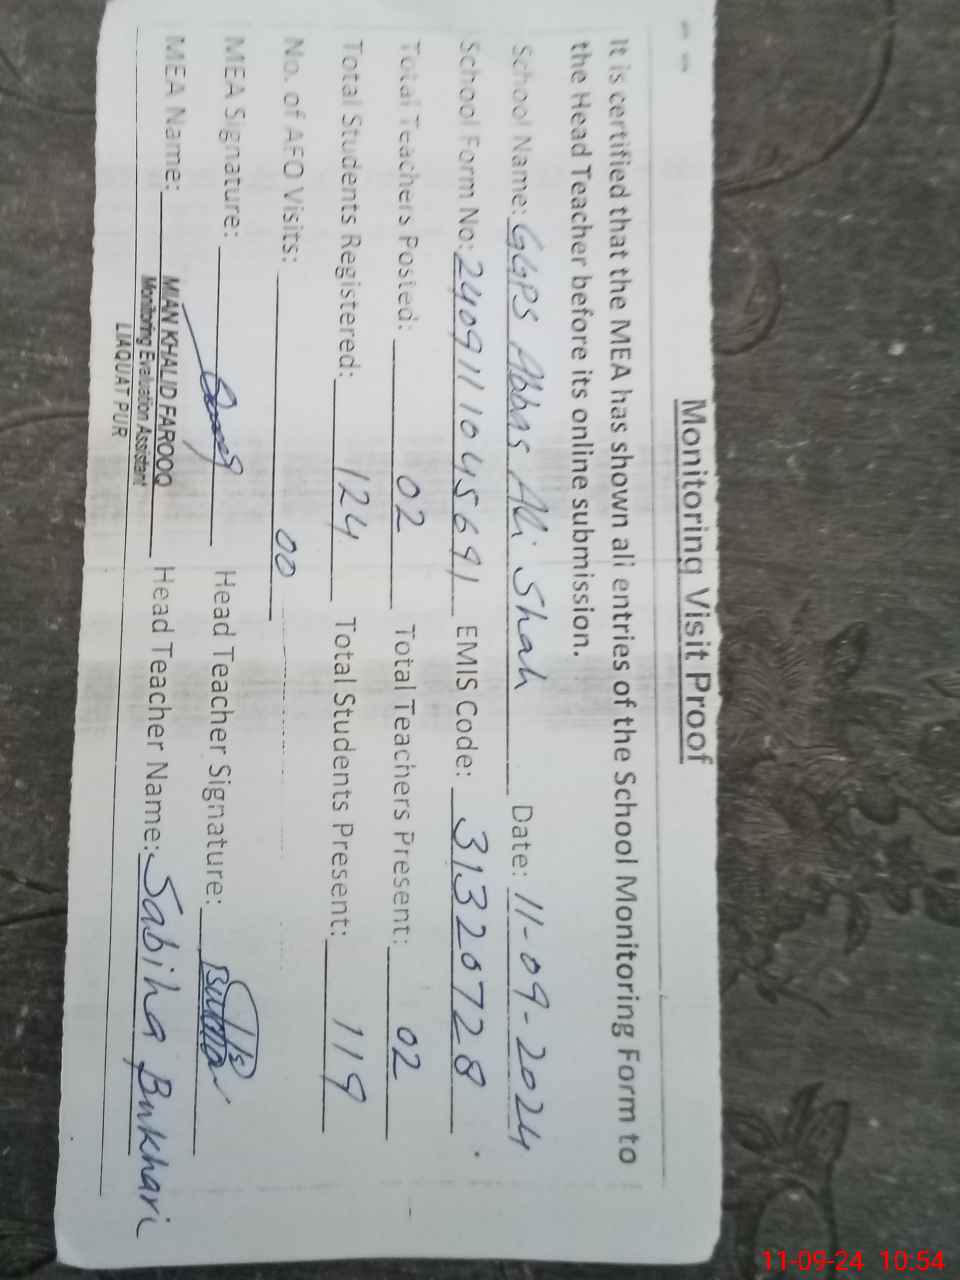 Monitoring Visit Proof
It is certified that the MEA has shown all entries of the School Monitoring Form to
the Head Teacher before its online submission.
School Name: GGPS Abbas Ali Shah Date: 11-09-2024
School Form No: 2409111045691 EMIS Code: 31320728
Total Teachers Posted: 02 Total Teachers Present: 02
Total Students Registered: 124 Total Students Present: 119
No. of AEO Visits: 00
MEA Signature: Head Teacher Signature:
MEA Name: MIAN KHALID FAROOQ Head Teacher Name: Sabiha Bukhari
Monitoring Evaluation Assistant
LIAQUAT PUR
11-09-24 10:54